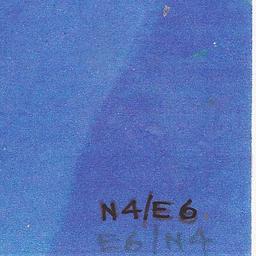 N4/E6
E6/N4